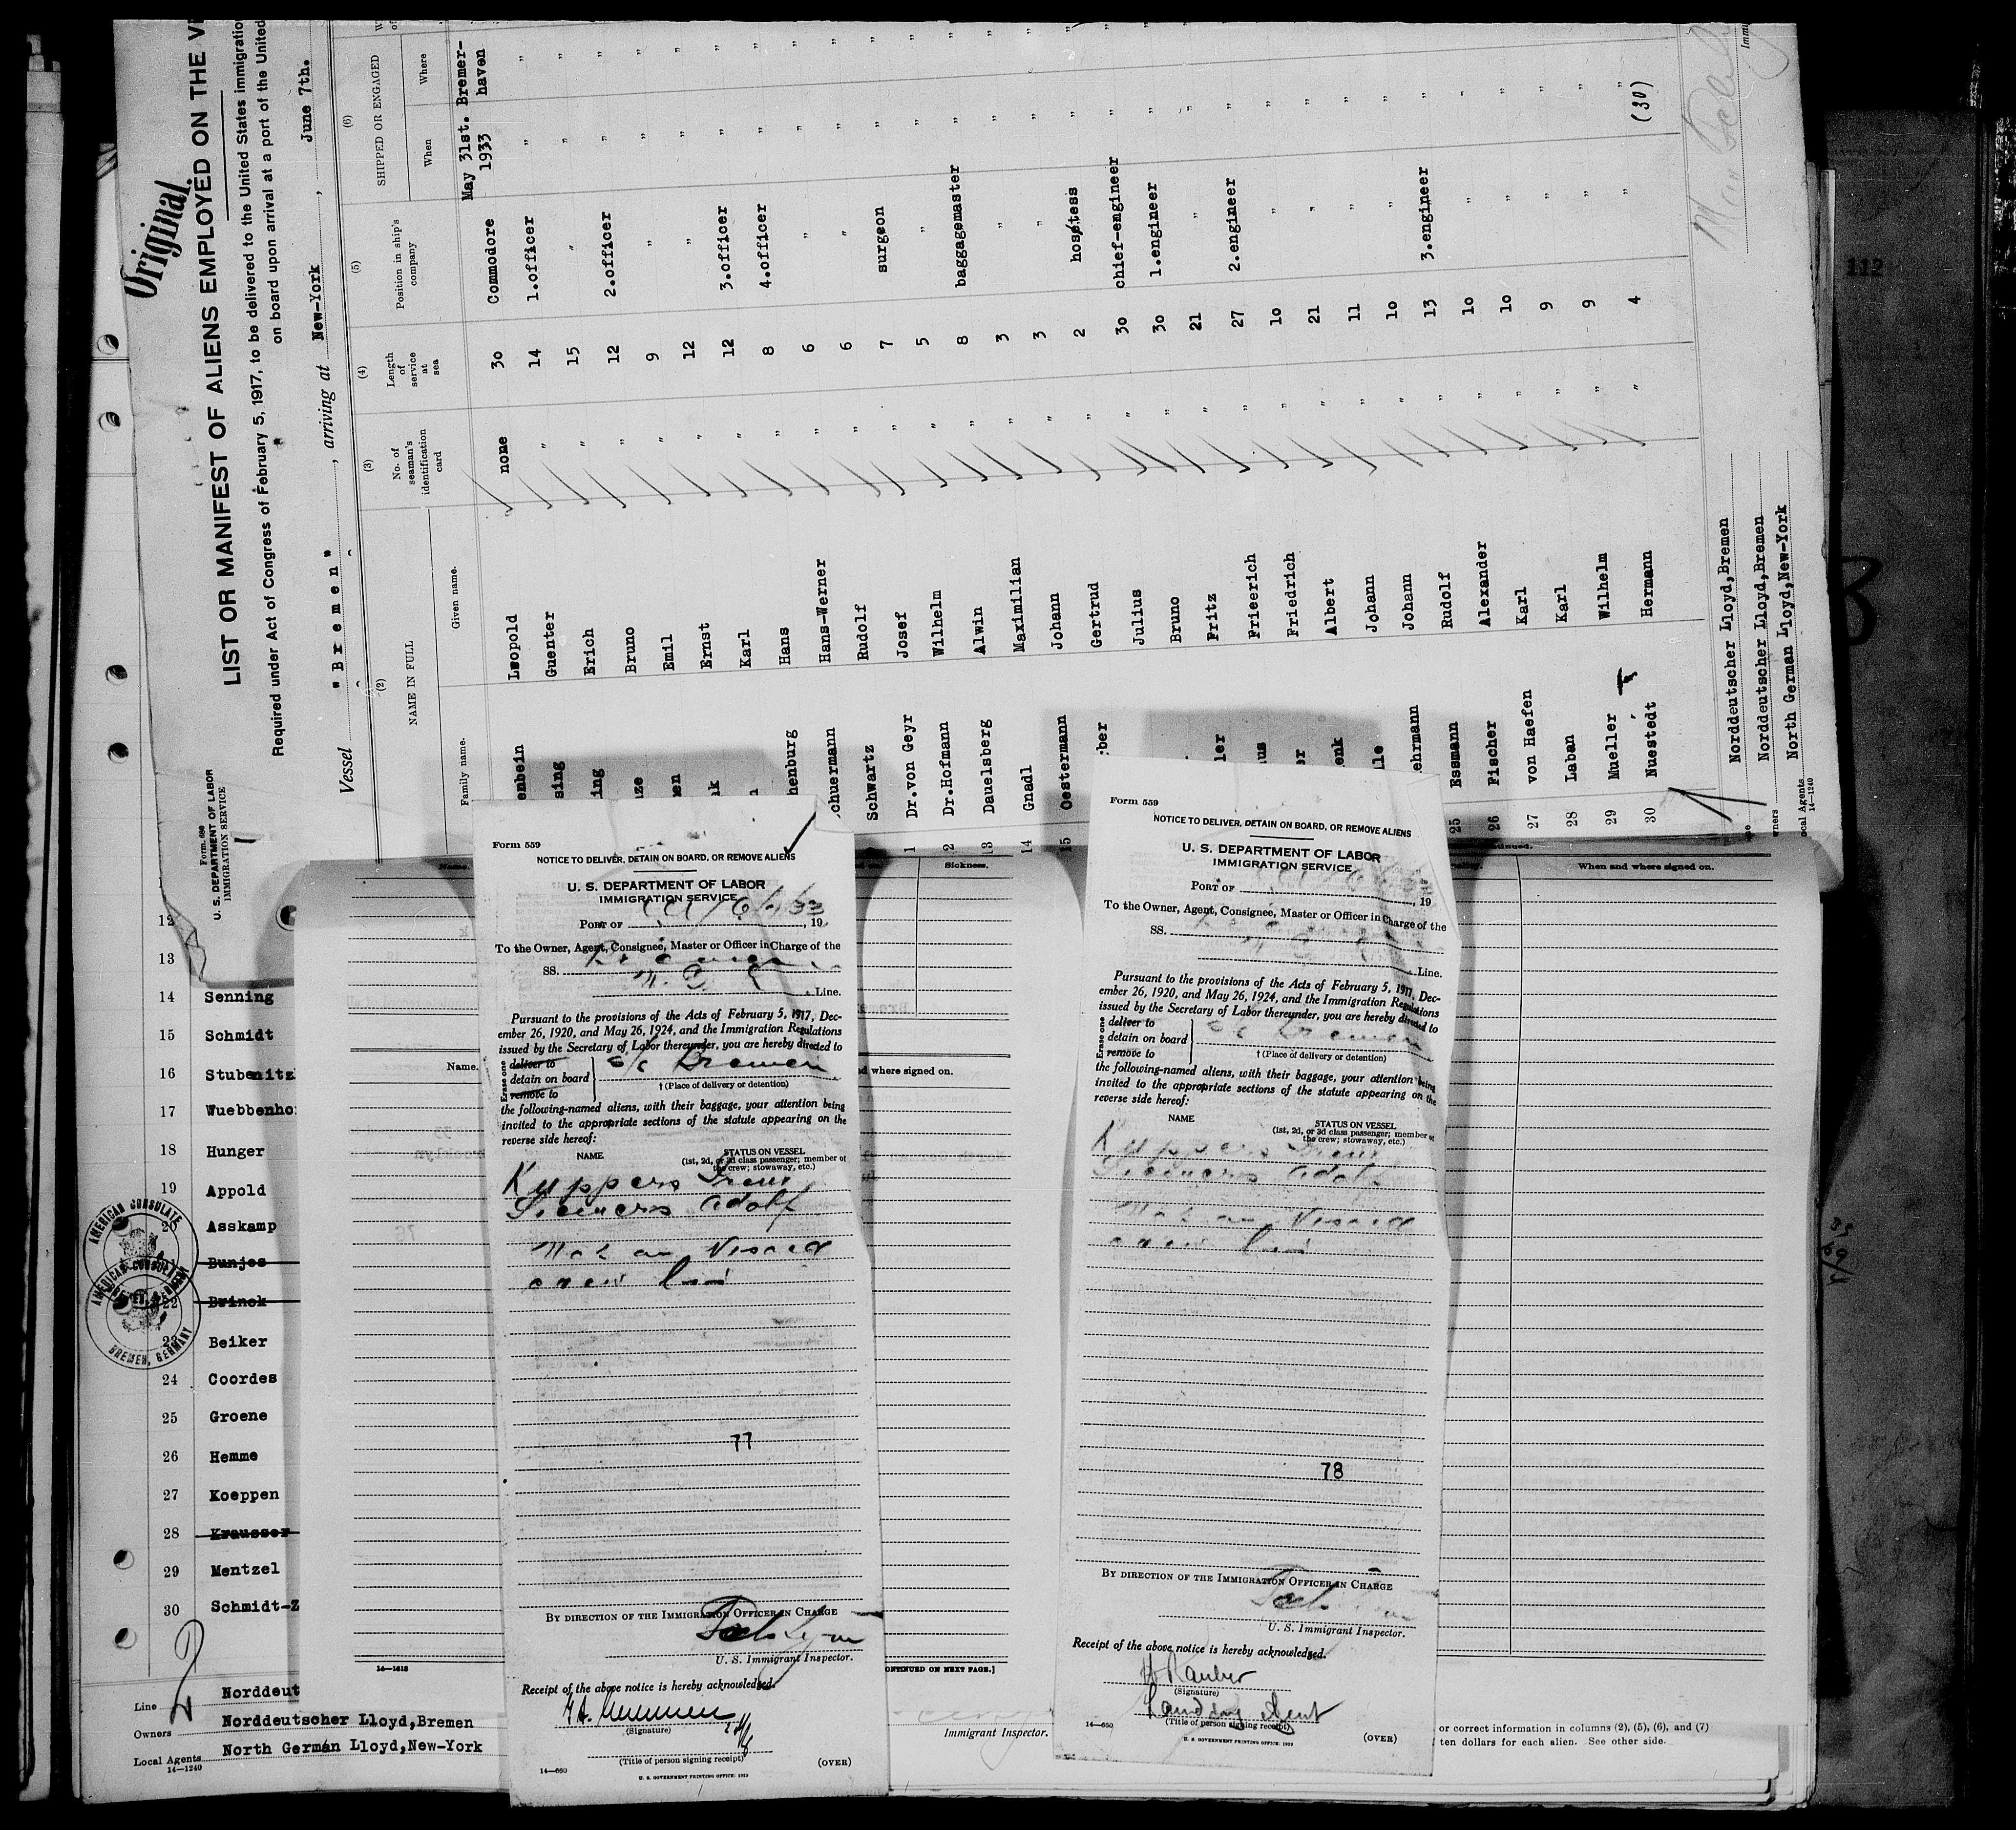 Original
Form 680
U. S. DEPARTMENT OF LABOR
IMMIGRATION SERVICE
LIST OR MANIFEST OF ALIENS EMPLOYED ON THE
Required under Act of Congress of February 5, 1917, to be delivered to the United States
on board upon arrival at a port of the United
Vessel "Bremen", arriving at New-York, June 7th.
(2) (3) (4) (5) (6)
NAME IN FULL
Family name. Given name.
No. of seaman's identification card
Length of service at sea
Position in ship's company
SHIPPED OR ENGAGED
When Where
Leopold none 3o Commodore May 31st. 1933 Bremer-haven
Guenter " 14 1.officer " "
Erich " 15 " " "
Bruno " 12 2.officer " "
Emil " 9 " " "
Ernst " 12 " " "
Karl " 12 3.officer " "
Hans " 8 4.officer " "
Hans-Werner " 6 " " "
Schwartz Rudolf " 6 " " "
Dr.von Geyr Josef " 7 surgeon " "
Dr.Hofmann Wilhelm " 5 " " "
13 Dauelsberg Alwin " 8 baggagemaster " "
14 Gnadl Maximilian " 3 " " "
15 Oestermann Johann " 3 " " "
Gertrud " 2 hostess " "
Julius " 3o chief-engineer " "
Bruno " 3o 1.engineer " "
Fritz " 21 " " "
Frieerich " 27 2.engineer " "
Friedrich " 1o " " "
Albert " 21 " " "
Johann " 11 " " "
Johann " 1o " " "
25 Essmann Rudolf " 13 3.engineer " "
26 Fischer Alexander " 1o " " "
27 von Haefen Karl " 1o " " "
28 Laban Karl " 9 " " "
29 Mueller Wilhelm " 9 " " "
30 Nuestedt Hermann " 4 " " "
(30)
Norddeutscher Lloyd,Bremen
Norddeutscher Lloyd,Bremen
North German Lloyd,New-York
14—1240
112
12
13
14 Senning
15 Schmidt
16 Stubenitz
17 Wuebbenho
18 Hunger
19 Appold
20 Asskamp
Bunjes
22 Brinck
23 Beiker
24 Coordes
25 Groene
26 Hemme
27 Koeppen
28 Krausser
29 Mentzel
30 Schmidt-Z
AMERICAN CONSULATE
AMERICAN CONSULATE
BREMEN, GERMANY
Line Norddeut
Owners Norddeutscher Lloyd,Bremen
Local Agents North German Lloyd,New-York
14—1240
2
Name.
Sickness.
When and where signed on.
Name.
where signed on.
14—1613
ONTINUED ON NEXT PAGE.]
Immigrant Inspector.
or correct information in columns (2), (5), (6), and (7)
ten dollars for each alien. See other side.
Form 559
NOTICE TO DELIVER, DETAIN ON BOARD, OR REMOVE ALIENS
U. S. DEPARTMENT OF LABOR
IMMIGRATION SERVICE
PORT OF , 19
To the Owner, Agent, Consignee, Master or Officer in Charge of the
SS. Bremen
Line.
Pursuant to the provisions of the Acts of February 5, 1917, Dec-
ember 26, 1920, and May 26, 1924, and the Immigration Regulations
issued by the Secretary of Labor thereunder, you are hereby directed to
Erase one
deliver to
detain on board
remove to
s/s Bremen
† (Place of delivery or detention)
the following-named aliens, with their baggage, your attention being
invited to the appropriate sections of the statute appearing on the
reverse side hereof:
NAME STATUS ON VESSEL
(1st, 2d, or 3d class passenger; member of
the crew; stowaway, etc.)
Kuppers
Adolf
Not on Visaed
crew list
77
BY DIRECTION OF THE IMMIGRATION OFFICER IN CHARGE
U. S. Immigrant Inspector.
Receipt of the above notice is hereby acknowledged.
(Signature)
(Title of person signing receipt)
14—660
(OVER)
U. S. GOVERNMENT PRINTING OFFICE: 1929
Form 559
NOTICE TO DELIVER, DETAIN ON BOARD, OR REMOVE ALIENS
U. S. DEPARTMENT OF LABOR
IMMIGRATION SERVICE
PORT OF , 19
To the Owner, Agent, Consignee, Master or Officer in Charge of the
SS.
Line.
Pursuant to the provisions of the Acts of February 5, 1917, Dec-
ember 26, 1920, and May 26, 1924, and the Immigration Regulations
issued by the Secretary of Labor thereunder, you are hereby directed to
Erase one
deliver to
detain on board
remove to
s/s Bremen
† (Place of delivery or detention)
the following-named aliens, with their baggage, your attention being
invited to the appropriate sections of the statute appearing on the
reverse side hereof:
NAME STATUS ON VESSEL
(1st, 2d, or 3d class passenger; member of
the crew; stowaway, etc.)
Kuppers
Adolf
Not on Visaed
crew list
78
BY DIRECTION OF THE IMMIGRATION OFFICER IN CHARGE
U. S. Immigrant Inspector.
Receipt of the above notice is hereby acknowledged.
(Signature)
Landing Agent
(Title of person signing receipt)
14—660
(OVER)
U. S. GOVERNMENT PRINTING OFFICE: 1929